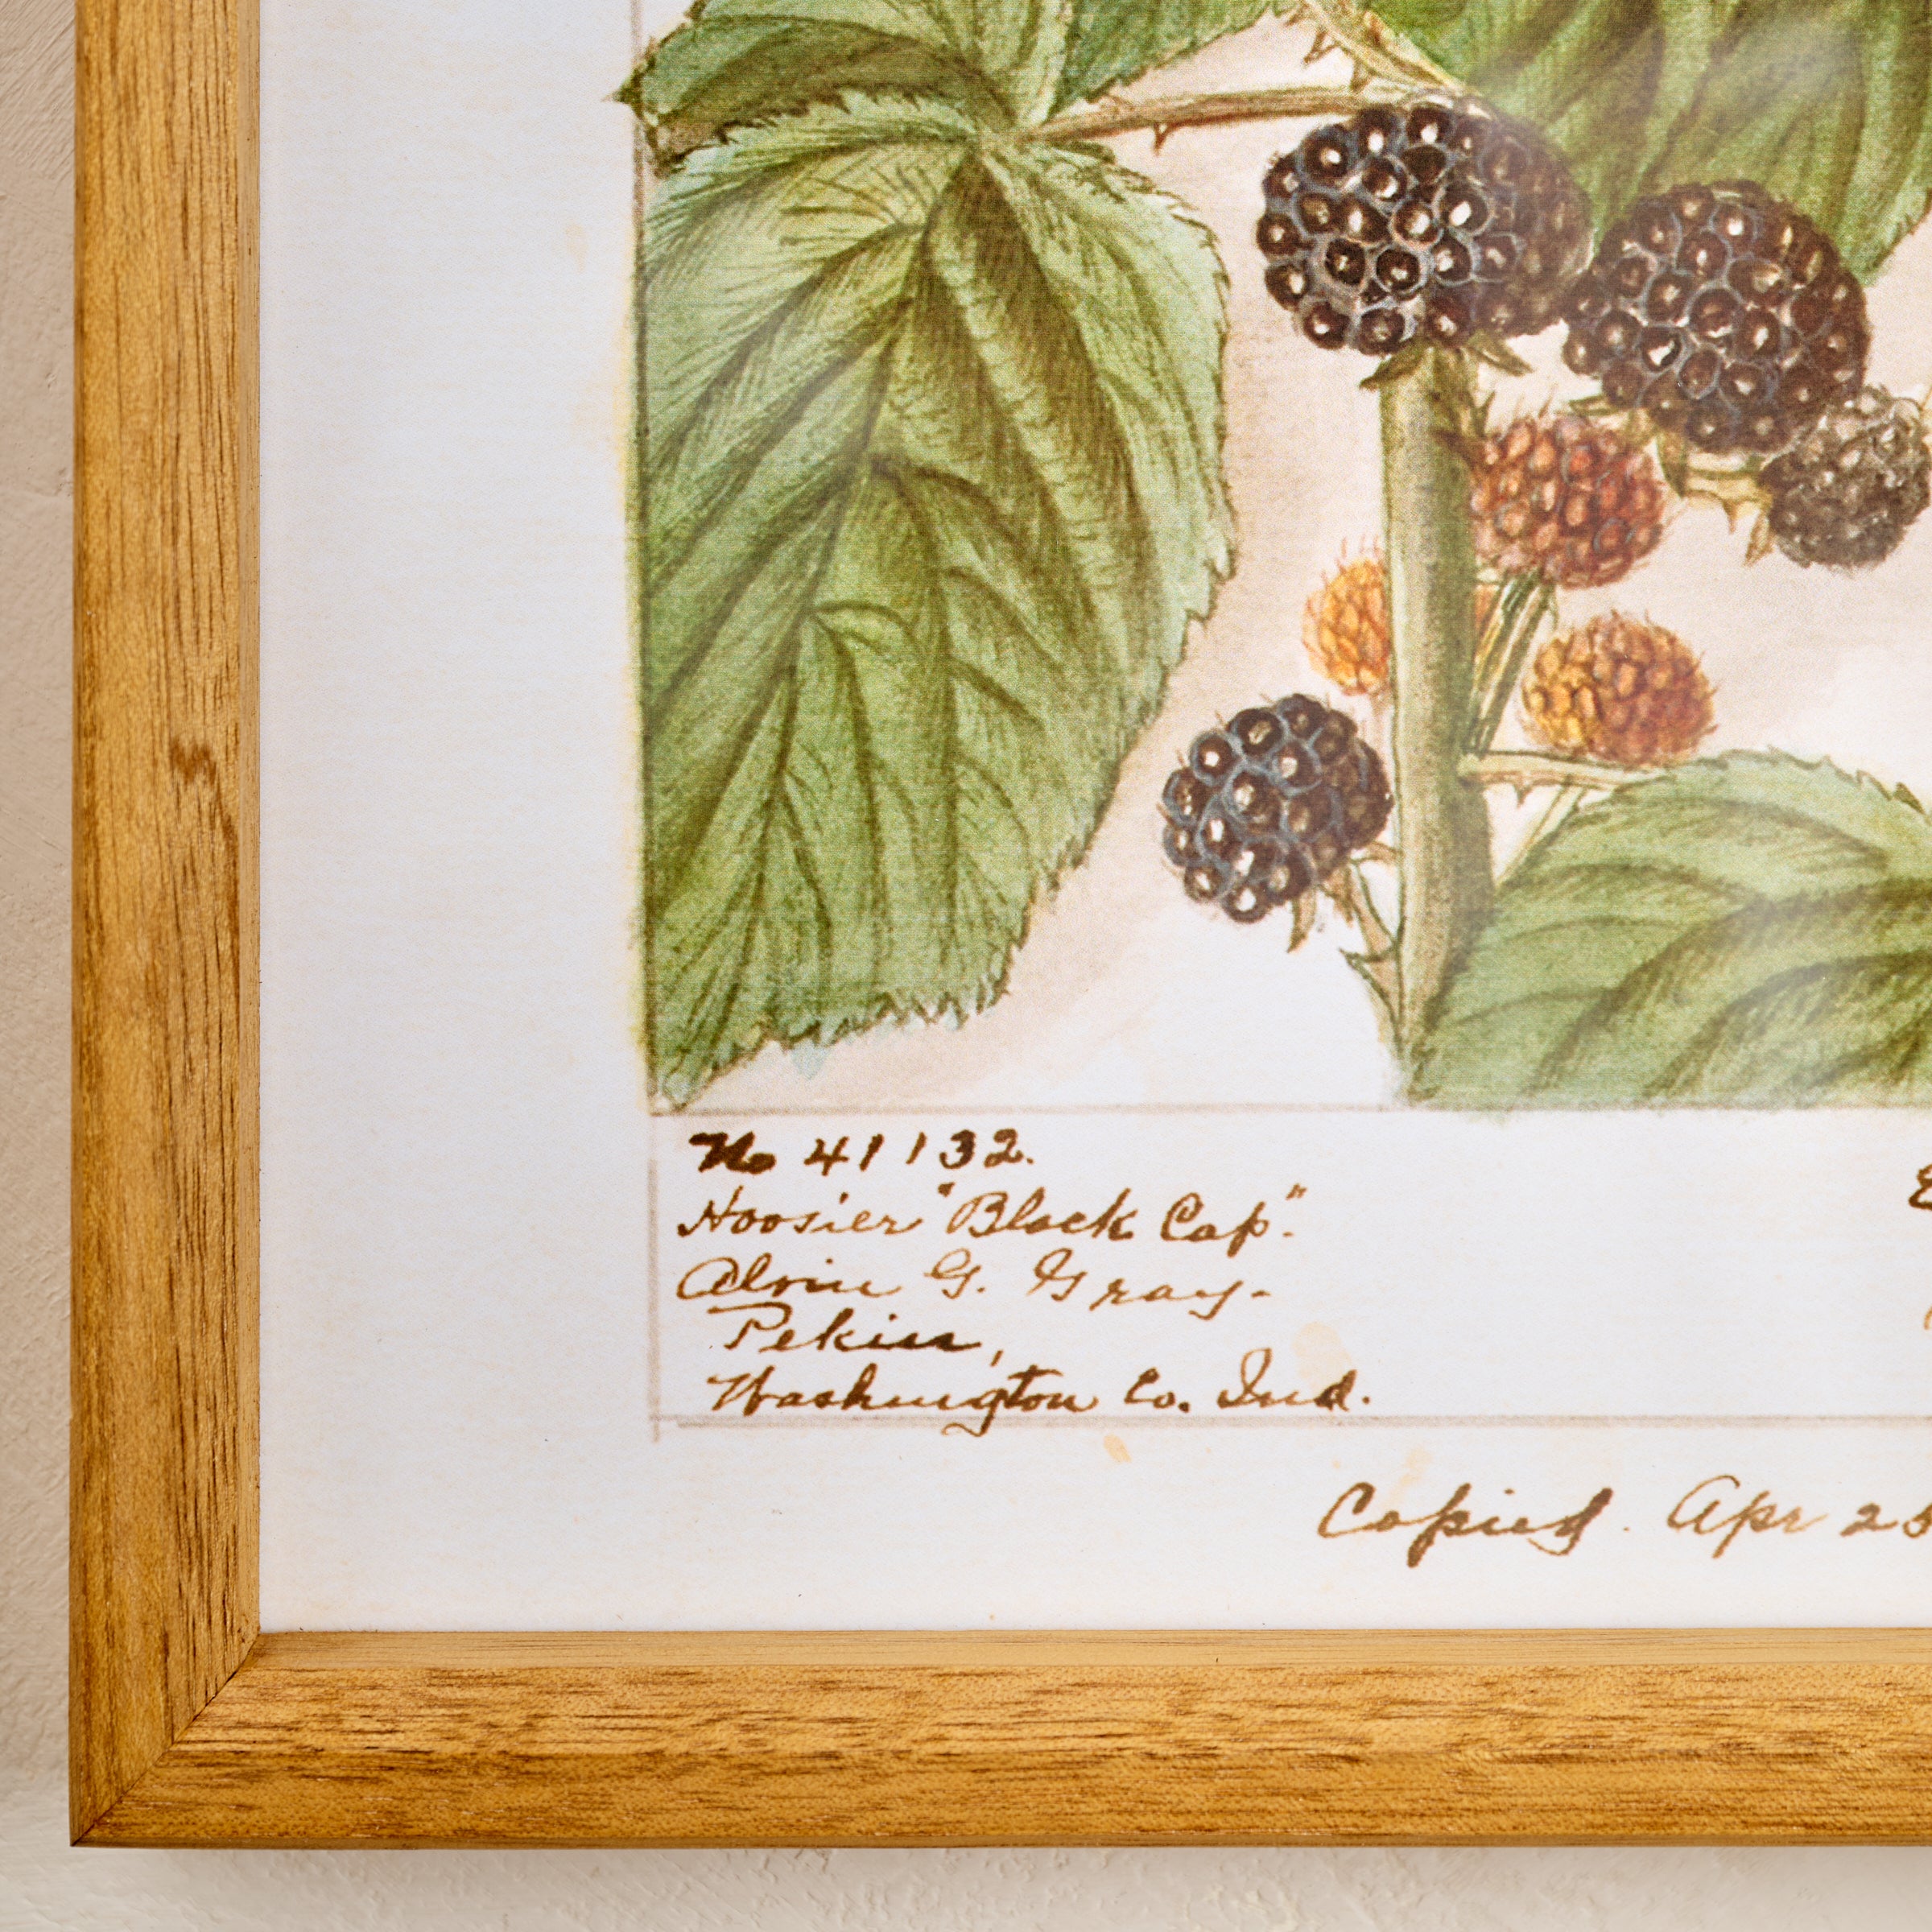 No 41132.
Hoosier "Black Cap".
Alvin G. Gray.
Pekin,
Washington Co. Ind.
Copied. Apr 25